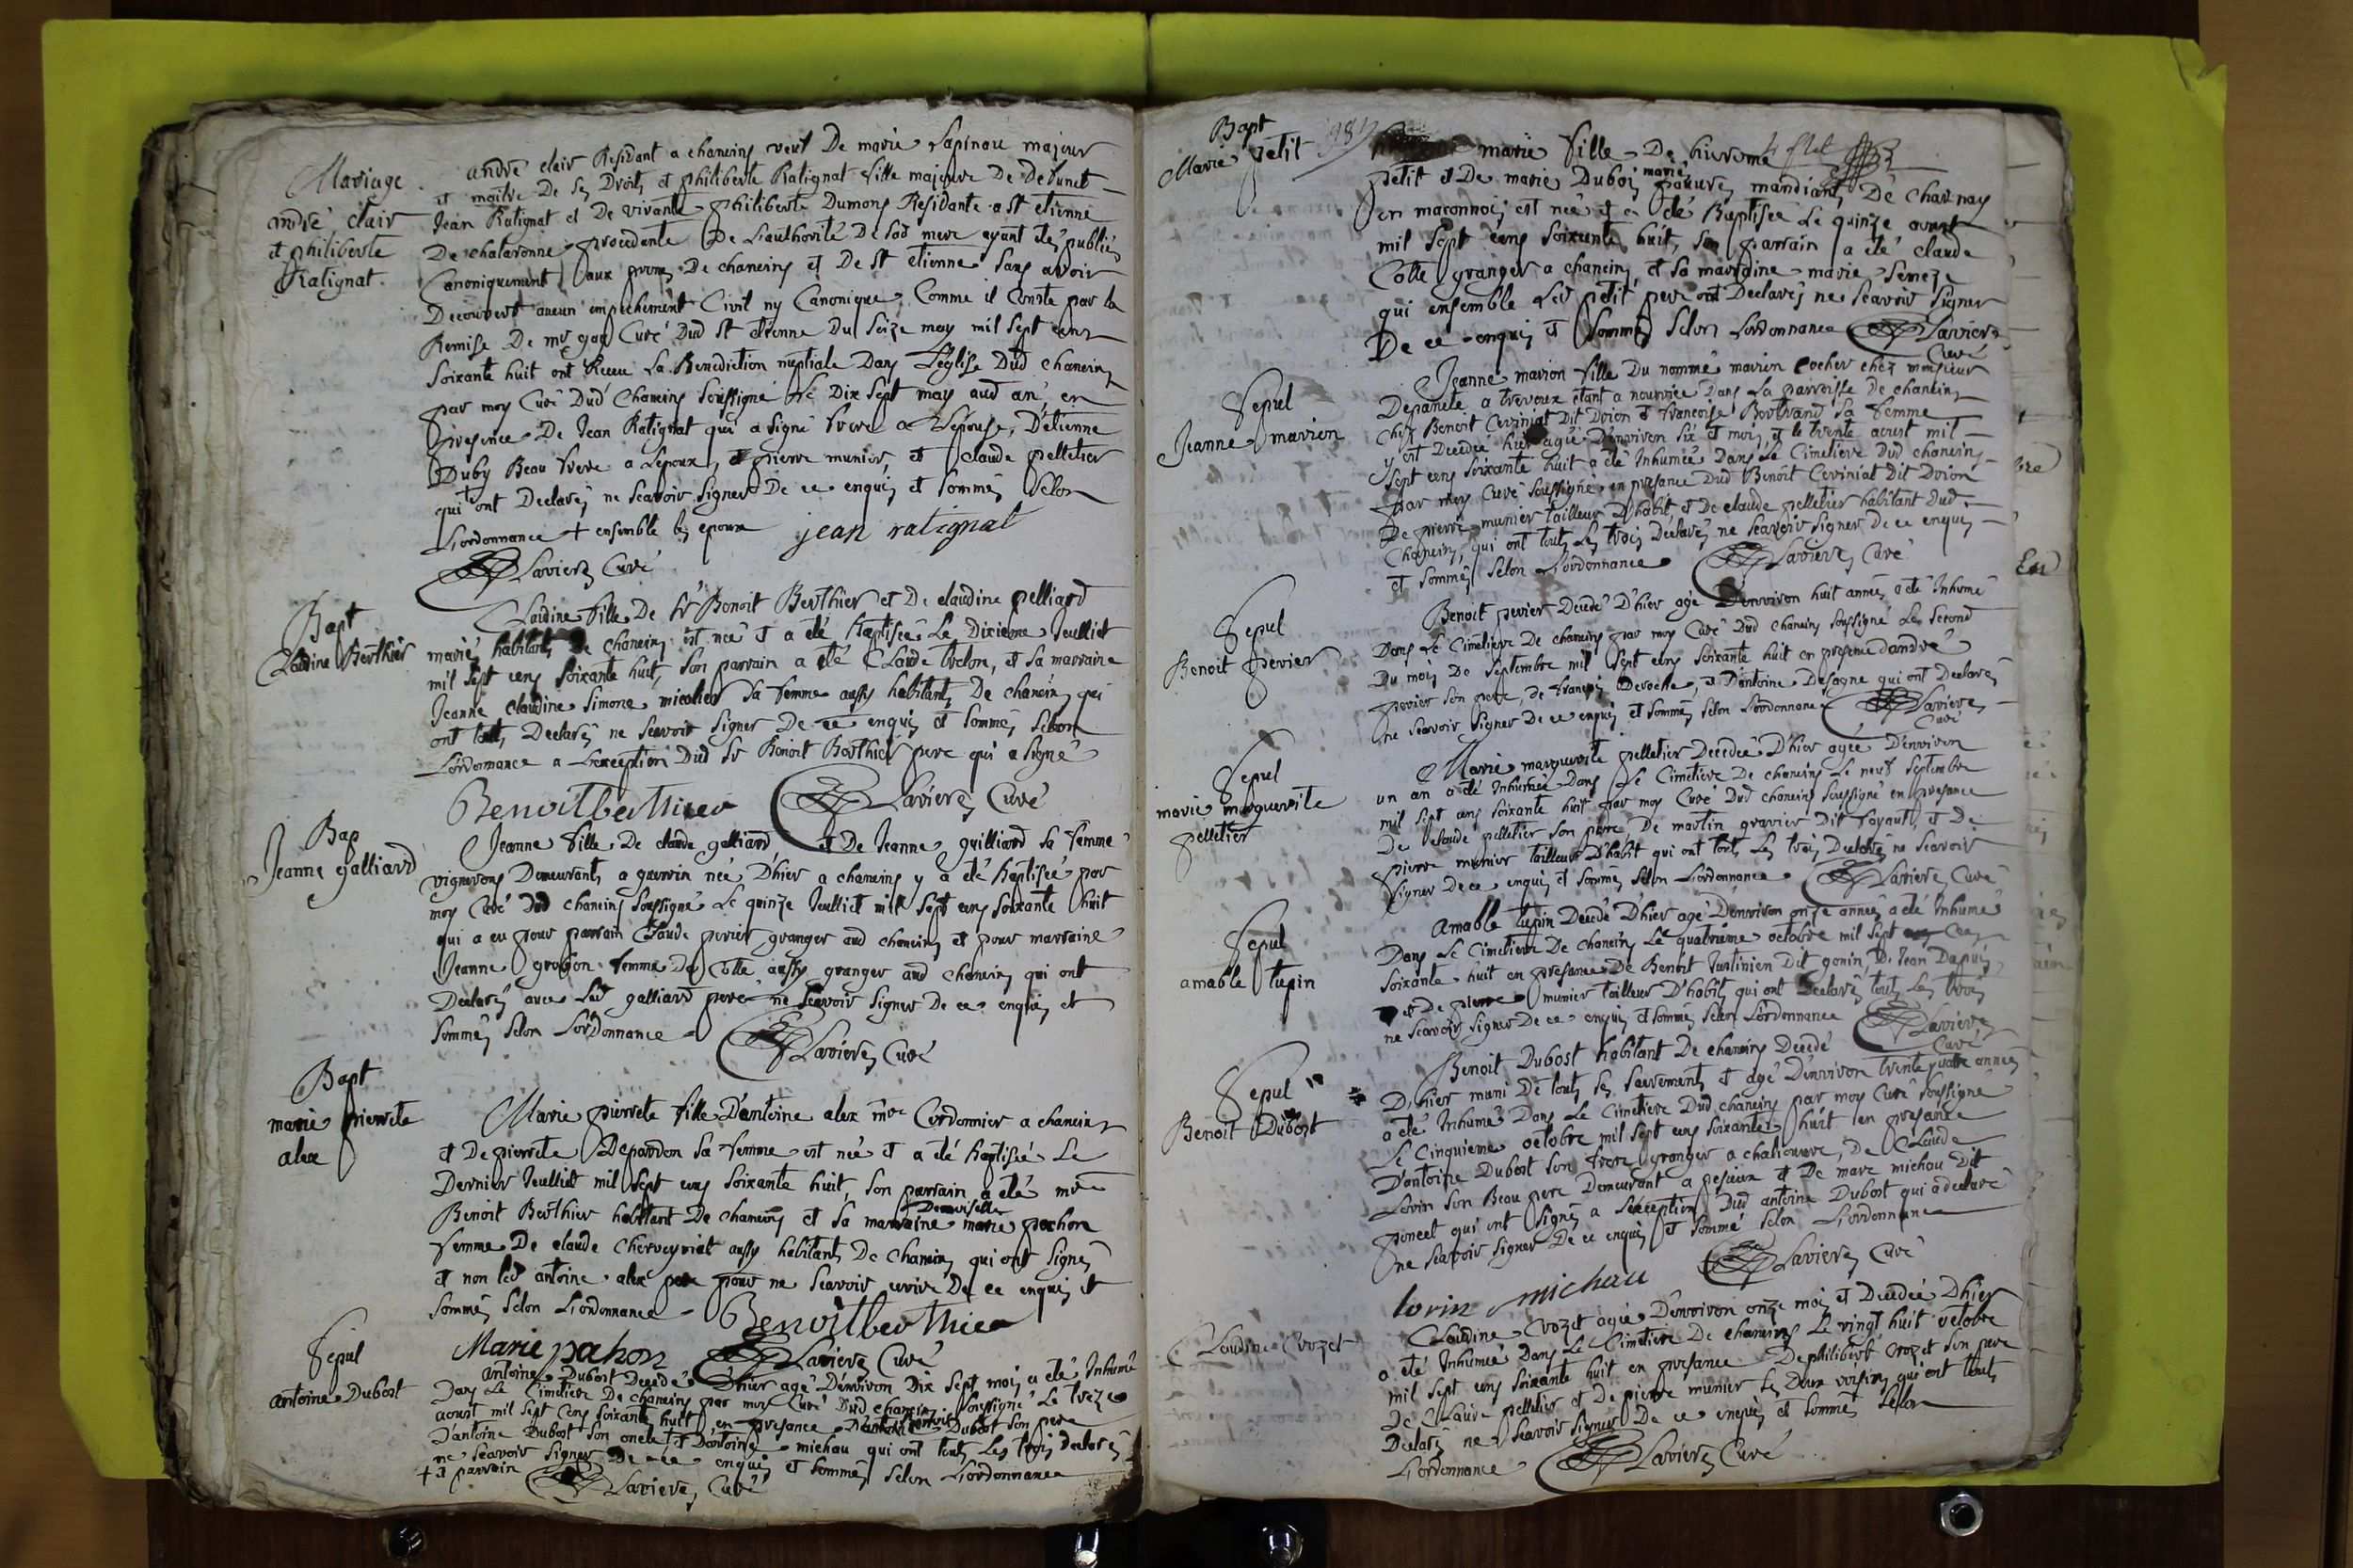 Mariage
andré clair
et philiberte
Ratignat.
andré clair Residant a chaneins veuf De marie Lapinou majeur
et maitre De Ses Droits et philiberte Ratignat fille majeure de Defunct
Jean Ratignat et De vivante philiberte Dumons Residante a St etienne
De chalaronne procedante De L'authorité De sad mere ayant étés publiés
Canoniquement aux prones De chaneins et De St etienne sans avoir
Decouvert aucun empechement Civil ny Canonique Comme il Conste par la
Remise De mre Curé Dud St etienne Du Seize may mil Sept cens
Soixante huit ont Receu La Benediction nuptiale Dans L'église Dud chaneins
par moy Curé Dud Chaneins Soussigné Le Dix Sept may aud an, en
presence De Jean Ratignat qui a signé frere a L'épouse, D'étienne
Duby Beau frere a Lepoux, et pierre munier, et claude pelletier
qui + ont Declarés ne Scavoir Signer De ce enquis et Sommés Selon
L'ordonnance + ensemble les epoux jean ratignat
Laviere Curé
Bapt
Claudine Berthier
Claudine fille De Sr Benoit Berthier et De claudine pelliard
mariés habitants De chaneins est neé et a été Baptiseé Le Dixieme Jeulliet
mil Sept cens Soixante huit, Son parrain a été Claude trelon, et Sa marraine
Jeanne claudine Simone micolier Sa femme aussy habitants De chaneins qui
ont touts Declarés ne Scavoir Signer De ce enquis et Sommés Selon
L'ordonnance a L'exeption Dud Sr Benoit Berthier pere qui a Signé
Benoitberthier Laviere Curé
Bap
Jeanne galliard
Jeanne fille De claude galliard et De Jeanne guilliard Sa femme
vignerons Demeurants a guerrin née D'hier a chaneins y a été Baptisée par
moy Curé Dud chaneins Soussigné Le quinze Jeulliet mil Sept cens Soixante huit
qui a eu pour parrain Claude perier granger aud chaneins et pour marraine
Jeanne grobon femme De Cotte aussy granger aud chaneins qui ont
Declarés avec Led galliard pere ne Scavoir Signer De ce enquis et
Sommés Selon L'ordonnance Laviere Curé
Bapt
marie pierrete
alex
Marie pierrete fille D'antoine alex mre Cordonnier a chaneins
et De pierrete Depardon Sa femme est neé et a été Baptiseé Le
Dernier Jeulliet mil Sept cens Soixante huit, Son parrain a été mre
Benoit Berthier habitant De chaneins et Sa marraine Demoiselle marie pochon
femme De claude Cherveyriat aussy habitants De chaneins qui ont Signés
et non led antoine alex pere pour ne Scavoir ecrire De ce enquis et
Sommés Selon L'ordonnance Benoitberthier
Marie pahon Laviere Curé
Sepul
antoine Dubost
antoine Dubost Decedé D'hier agé D'environ Dix Sept mois a été Inhumé
Dans Le Cimetiere De chaneins par moy Curé Dud chaneins Soussigné Le treze
aoust mil Sept Cens Soixante huit en presance Benoit Dubost Son pere
D'antoine Dubost Son oncle + et D'antoine michau qui ont touts Les trois Declarés
ne Scavoir Signer De ce enquis et Sommés Selon L'ordonnance
+ et parrain Laviere Curé
Bapt
Marie petit
marie fille De hierome
petit et De marie Dubois mariés pauvres mandiants De Charnay
en maconnois est neé et a été Baptiseé Le quinze aoust
mil Sept cens Soixante huit, Son parrain a été claude
Cotte granger a chaneins et Sa marraine marie Semeze
qui ensemble Led petit pere ont Declarés ne Scavoir Signer
De ce enquis et Sommés Selon L'ordonnance Laviere
Curé
Sepul
Jeanne marion
Jeanne marion fille Du nommé marion Cocher chez monsieur
Depanete a trevoux etant a nourrice Dans La parroisse De chaneins
Chez Benoit Ceviniat Dit Doion et francoise Bertrand Sa femme
y est Decedée hier agée D'environ Six mois et le trente aoust mil
Sept cens Soixante huit a été Inhumeé Dans Le Cimetiere Dud chaneins
par moy Curé Soussigné en presance Dud Benoit Ceviniat Dit Doion
De pierre munier tailleur D'habit et De claude pelletier habitant Dud
Chaneins, qui ont touts Les trois Declarés ne Scavoir Signer De ce enquis
et Sommés Selon L'ordonnance Laviere Curé
Sepul
Benoit perier
Benoit perier Decedé D'hier agé D'environ huit années a été Inhumé
Dans Le Cimetiere De chaneins par moy Curé Dud chaneins Soussigné Le Second
Du mois De Septembre mil Sept cens Soixante huit en presence d'andré
perier Son pere, de françois Deroche, et D'antoine Desagne qui ont Declarés
ne Scavoir Signer De ce enquis et Sommés Selon L'ordonnance Laviere
Curé
Sepul
marie marguerite
pelletier
Marie marguerite pelletier Decedeé D'hier agée D'environ
un an a été Inhumeé Dans Le Cimetiere De chaneins Le neuf Septembre
mil Sept cens Soixante huit par moy Curé Dud chaneins Soussigné en presance
De claude pelletier Son pere, De martin gravier Dit Fayaut, et De
pierre munier tailleur D'habit qui ont touts Les trois Declarés ne Scavoir
Signer De ce enquis et Sommés Selon L'ordonnance Laviere Curé
Sepul
amable tupin
Amable tupin Decedé D'hier agé D'environ onze années a été Inhumé
Dans Le Cimetiere De chaneins Le quatrieme octobre mil Sept Cens
Soixante huit en presance De Benoit Justinien Dit gonin, De Jean Dapuis
et De pierre munier tailleur D'habits qui ont Declarés touts Les trois
ne Scavoir Signer De ce enquis et Sommés Selon L'ordonnance Laviere
Curé
Sepul
Benoit Dubost
Benoit Dubost habitant De chaneins Decedé
D'hier muni De touts Ses Sacrements et agé D'environ trente quatre années
a été Inhumé Dans Le Cimetiere Dud chaneins par moy Curé Soussigné
Le Cinquieme octobre mil Sept cens Soixante huit en presance
D'antoine Dubost Son frere granger a chaliouvre, De Claude
Lorin Son Beau pere Demeurant a pesieux et De marc michau Dit
poncet qui ont Signés a L'exception Dud antoine Dubost qui a declaré
ne Scavoir Signer De ce enquis et Sommé Selon L'ordonnance
lorin michau Laviere Curé
Claudine Crozet
Claudine Crozet ageé D'environ onze mois et Decedeé D'hier
a été Inhumeé Dans Le Cimetiere De chaneins Le vingt huit octobre
mil Sept cens Soixante huit en presance De philibert Crozet Son pere
De Claude pelletier et De pierre munier Ses Deux voisins qui ont touts
Declarés ne Scavoir Signer De ce enquis et Sommés Selon
L'ordonnance Laviere Curé